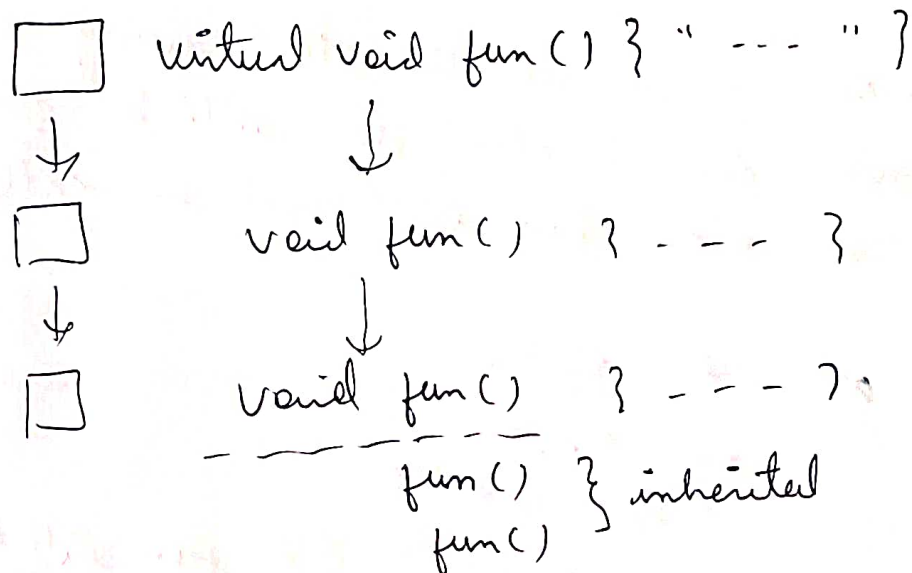 virtual void fun() { " --- " }
void fun() { - - - }
void fun() { - - - }
fun() } inherited
fun()